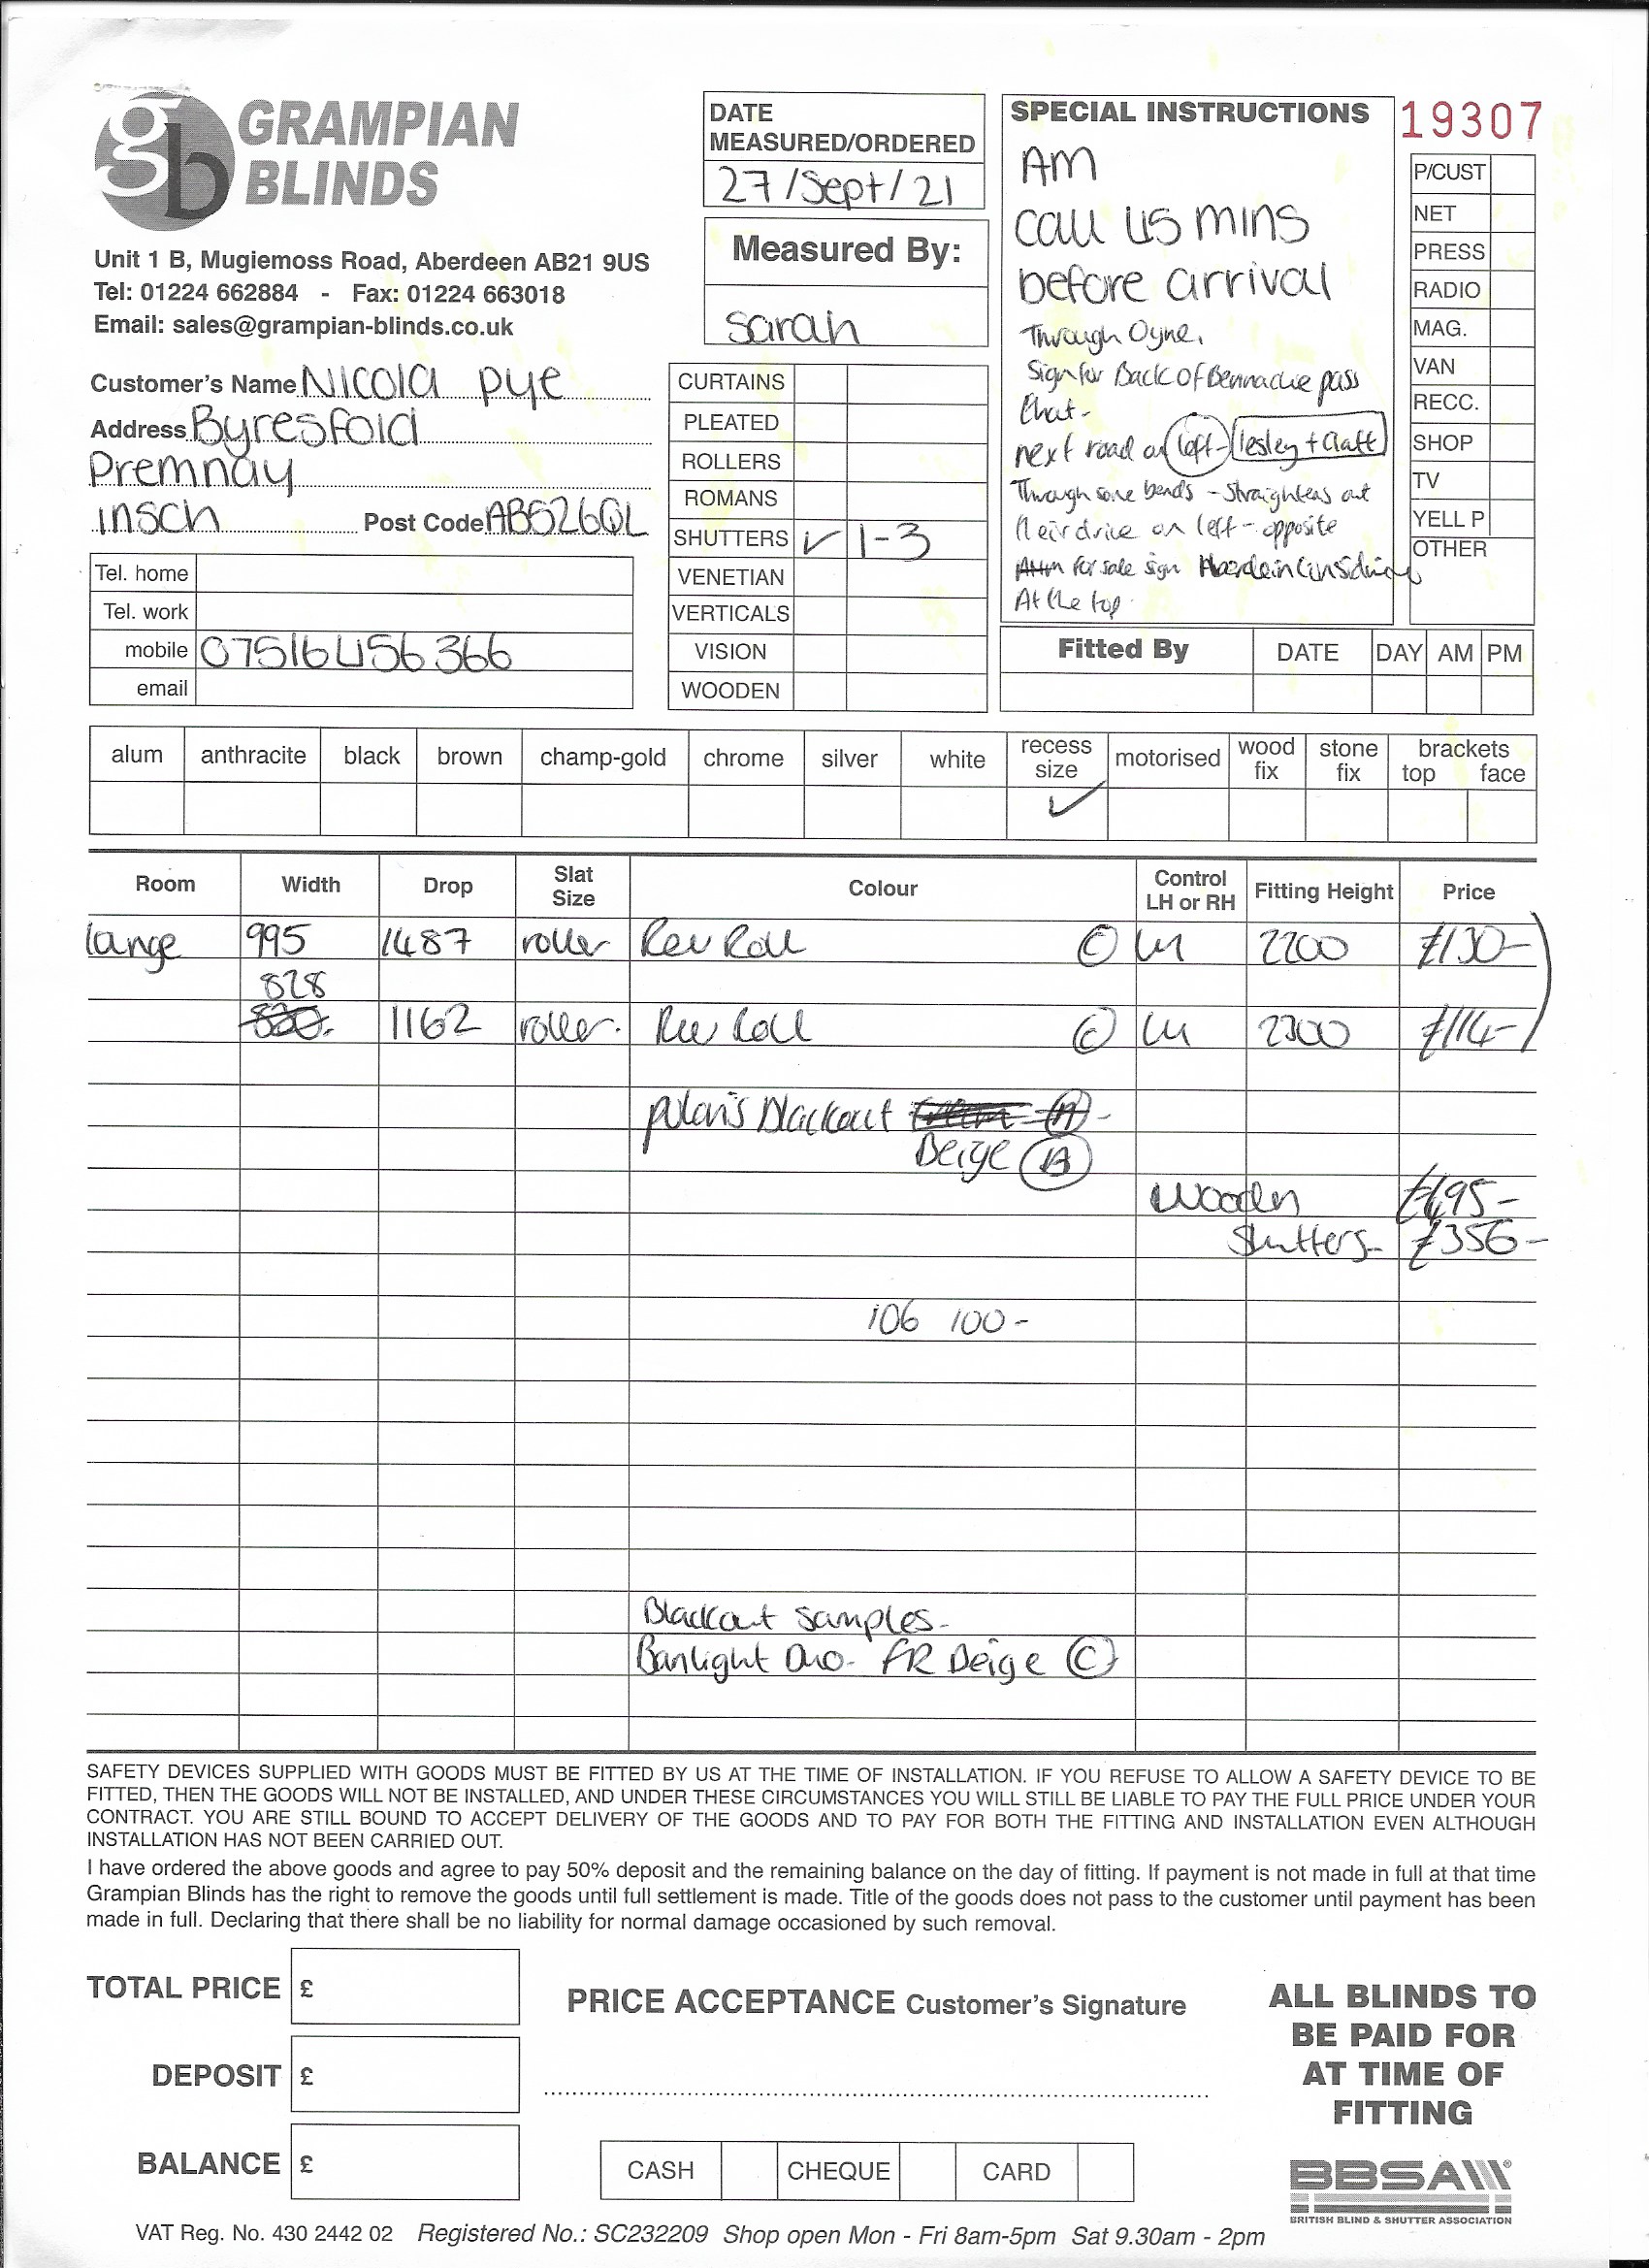 gb GRAMPIAN
BLINDS
Unit 1 B, Mugiemoss Road, Aberdeen AB21 9US
Tel: 01224 662884 - Fax: 01224 663018
Email: sales@grampian-blinds.co.uk
Customer's Name Nicola pye
Address Byresfold
Premnay
insch Post Code AB526QL
Tel. home
Tel. work
mobile 07516456366
email
DATE
MEASURED/ORDERED
27/Sept/21
Measured By:
Sarah
CURTAINS
PLEATED
ROLLERS
ROMANS
SHUTTERS ✓ 1-3
VENETIAN
VERTICALS
VISION
WOODEN
SPECIAL INSTRUCTIONS
AM
call 45 mins
before arrival
Through Oyne.
Sign for Back of Bennachie pass
that-
next road on left- lesley +
Through some bends - straightens out
their drive on left - opposite
for sale sign Aberdein Considine
At the top.
19307
P/CUST
NET
PRESS
RADIO
MAG.
VAN
RECC.
SHOP
TV
YELL P
OTHER
Fitted By DATE DAY AM PM
alum anthracite black brown champ-gold chrome silver white recess size motorised wood fix stone fix brackets top face
✓
Room Width Drop Slat Size Colour Control LH or RH Fitting Height Price
995 1487 roller Rev Roll © LH 2200 £130-
828
1162 roller. Rev Roll © LH 2300 £114-
polaris Blackout
Beige Ⓑ
Wooden
Shutters- £356-
106 100-
Blackout samples-
Banlight Duo- FR Beige ©
SAFETY DEVICES SUPPLIED WITH GOODS MUST BE FITTED BY US AT THE TIME OF INSTALLATION. IF YOU REFUSE TO ALLOW A SAFETY DEVICE TO BE
FITTED, THEN THE GOODS WILL NOT BE INSTALLED, AND UNDER THESE CIRCUMSTANCES YOU WILL STILL BE LIABLE TO PAY THE FULL PRICE UNDER YOUR
CONTRACT. YOU ARE STILL BOUND TO ACCEPT DELIVERY OF THE GOODS AND TO PAY FOR BOTH THE FITTING AND INSTALLATION EVEN ALTHOUGH
INSTALLATION HAS NOT BEEN CARRIED OUT.
I have ordered the above goods and agree to pay 50% deposit and the remaining balance on the day of fitting. If payment is not made in full at that time
Grampian Blinds has the right to remove the goods until full settlement is made. Title of the goods does not pass to the customer until payment has been
made in full. Declaring that there shall be no liability for normal damage occasioned by such removal.
TOTAL PRICE £
DEPOSIT £
BALANCE £
PRICE ACCEPTANCE Customer's Signature
CASH CHEQUE CARD
ALL BLINDS TO
BE PAID FOR
AT TIME OF
FITTING
BBSA
BRITISH BLIND & SHUTTER ASSOCIATION
VAT Reg. No. 430 2442 02 Registered No.: SC232209 Shop open Mon - Fri 8am-5pm Sat 9.30am - 2pm